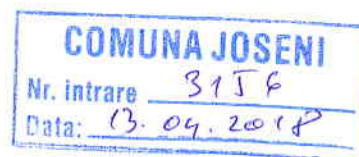 COMUNA JOSENI
Nr. intrare 3156
Data: 13. 04. 2018